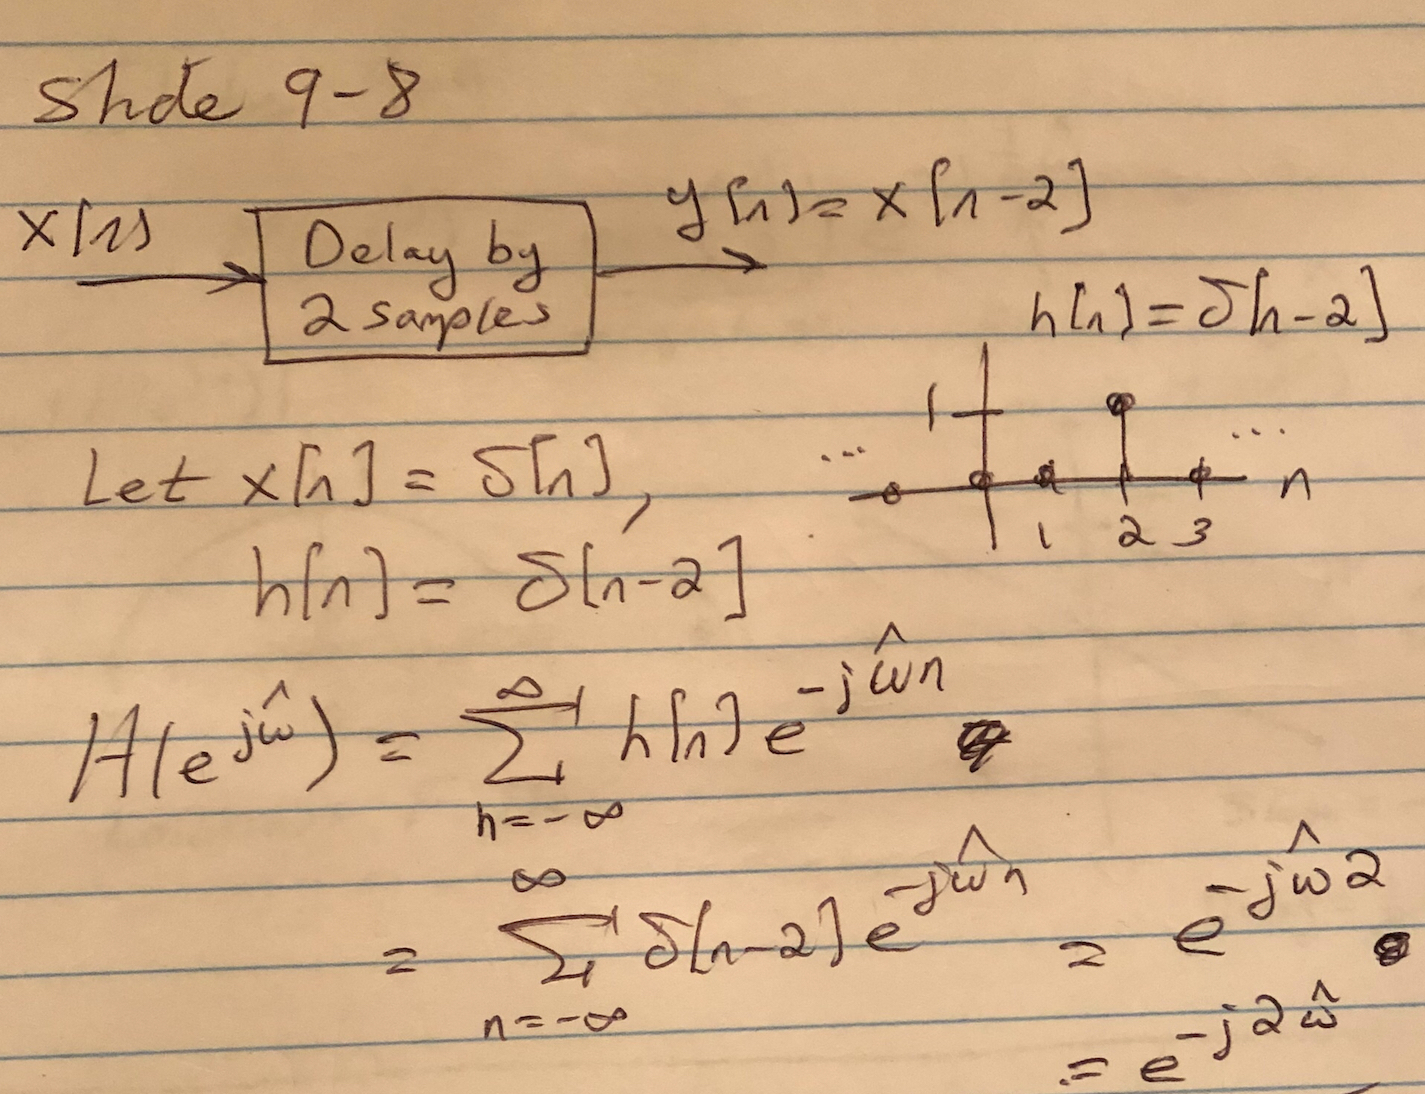 Slide 9-8
x[n]
Delay by
2 samples
y[n] = x[n-2]
h[n] = δ[n-2]
1
... ...
n
1 2 3
Let x[n] = δ[n],
h[n] = δ[n-2]
H(e^{jω̂}) = ∑_{n=-∞}^{∞} h[n] e^{-jω̂n}
= ∑_{n=-∞}^{∞} δ[n-2] e^{-jω̂n} = e^{-jω̂2}
= e^{-j2ω̂}